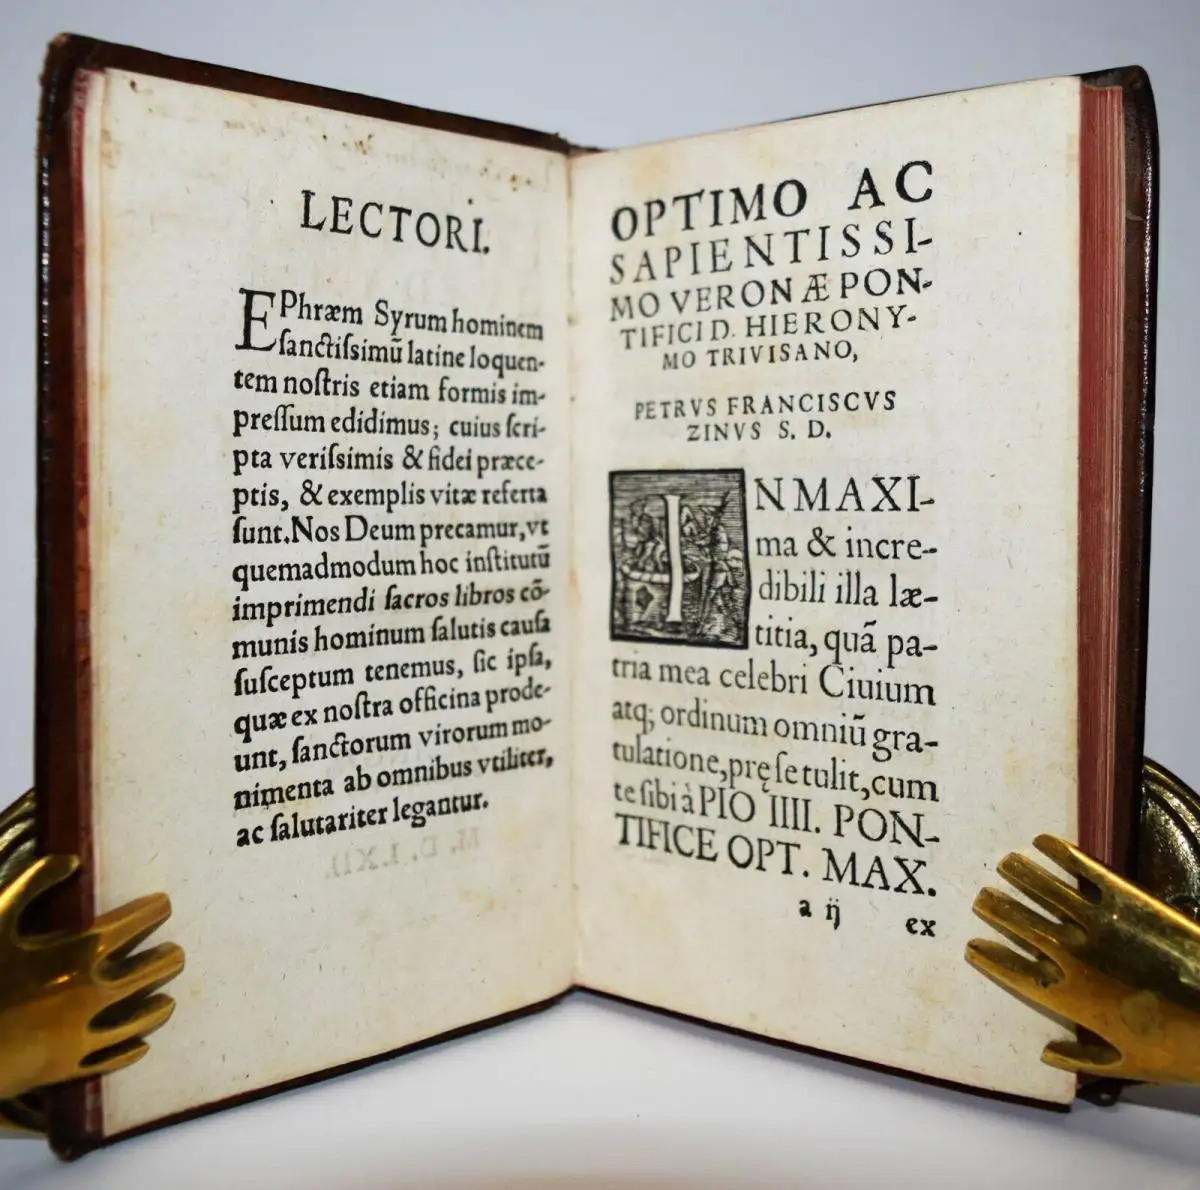 LECTORI.
EPhræm Syrum hominem
ſanctiſsimũ latine loquen-
tem noſtris etiam formis im-
preſſum edidimus; cuius ſcri-
pta veriſsimis & fidei præce-
ptis, & exemplis vitæ referta
ſunt. Nos Deum precamur, vt
quemadmodum hoc inſtitutũ
imprimendi ſacros libros cõ-
munis hominum ſalutis cauſa
ſuſceptum tenemus, ſic ipſa,
quæ ex noſtra officina prode-
unt, ſanctorum virorum mo-
nimenta ab omnibus vtiliter,
ac ſalutariter legantur.
OPTIMO AC
SAPIENTISSI-
MO VERONÆ PON-
TIFICI D. HIERONY-
MO TRIVISANO,
PETRVS FRANCISCVS
ZINVS S. D.
IN MAXI-
ma & incre-
dibili illa læ-
titia, quã pa-
tria mea celebri Ciuium
atq; ordinum omniũ gra-
tulatione, pręſe tulit, cum
te ſibi à PIO IIII. PON-
TIFICE OPT. MAX.
a ij
ex
M. D. LXII.